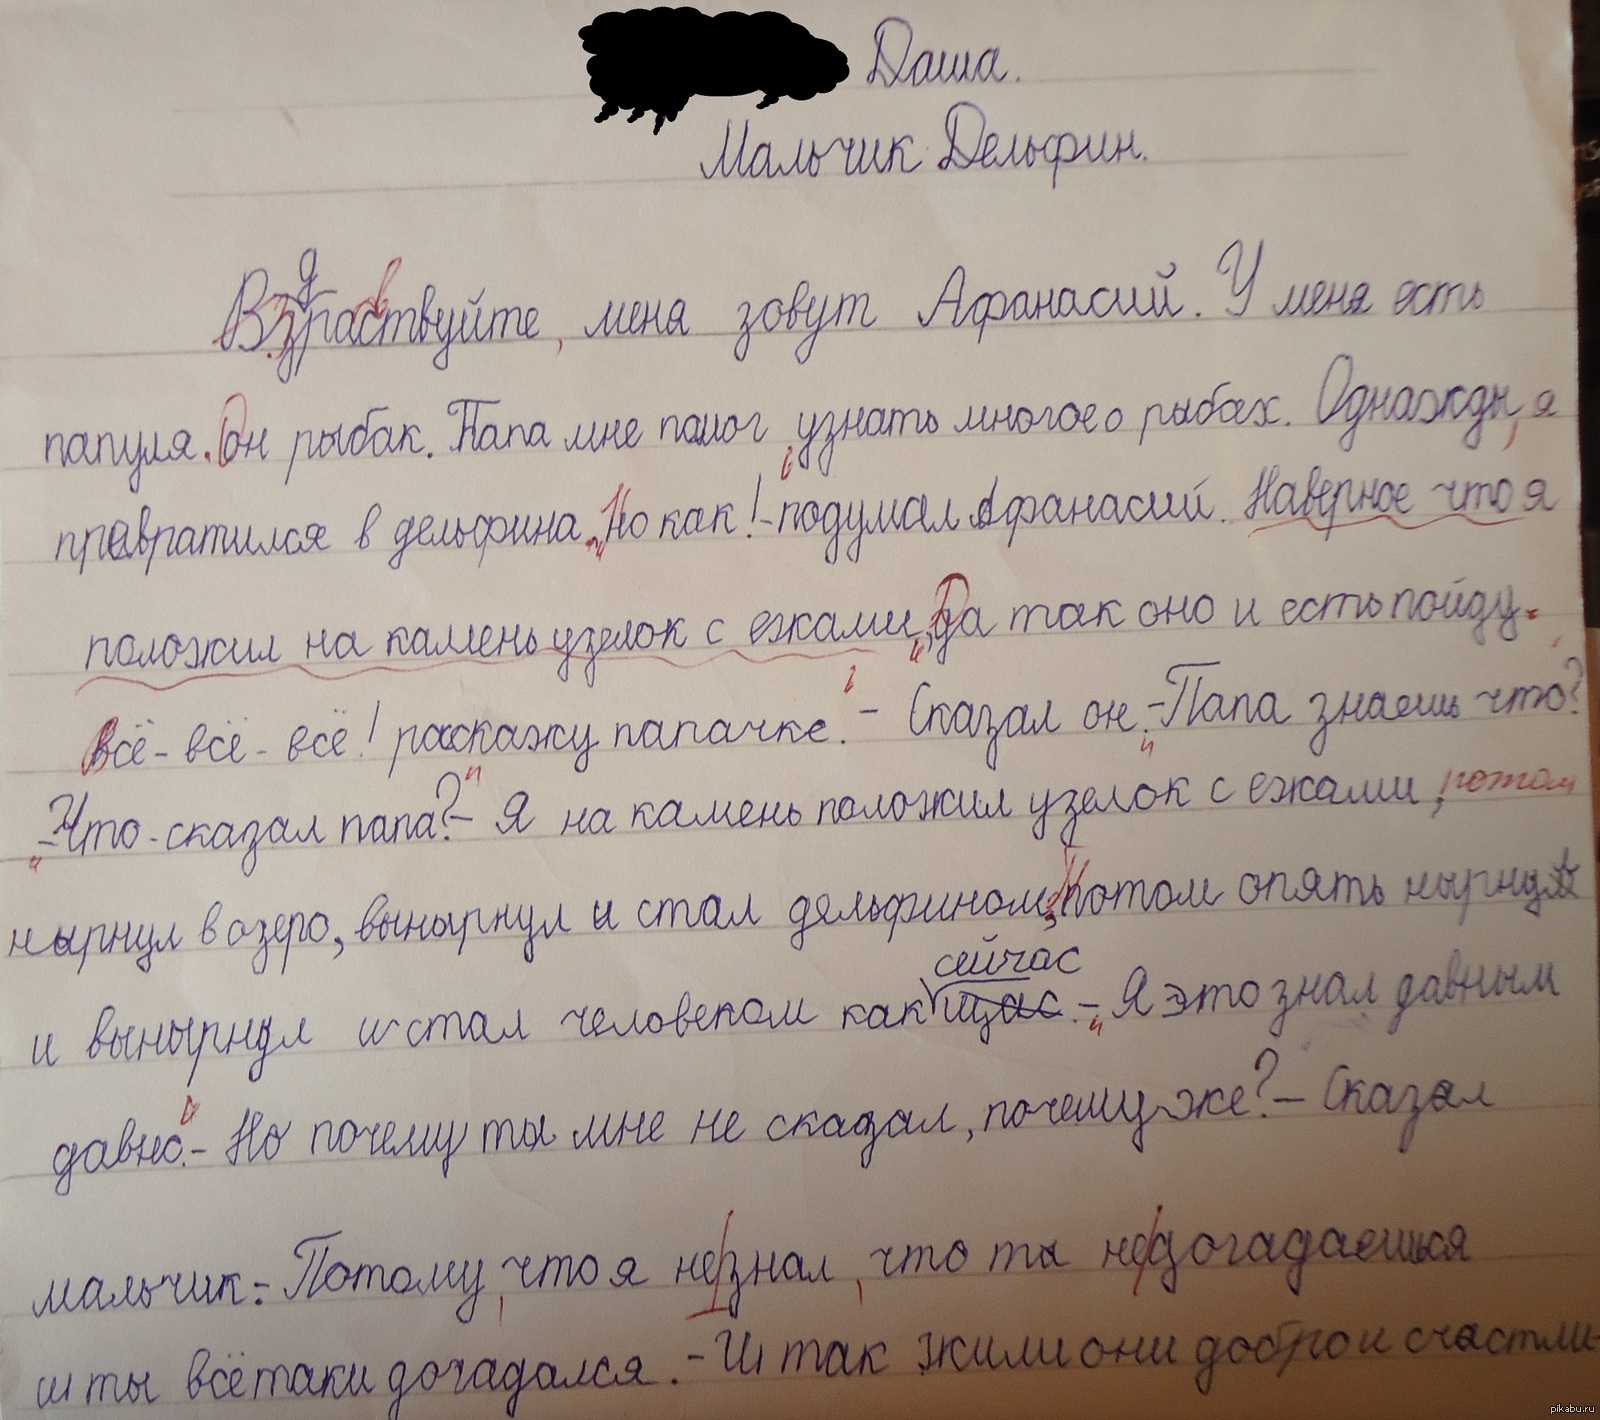 Даша.
Мальчик Дельфин.
Вздраствуйте, меня зовут Афанасий. У меня есть
папуля. Он рыбак. Папа мне помог узнать многое о рыбах. Однажды, я
превратился в дельфина. „Но как! - подумал Афанасий. Наверное что я
положил на камень узелок с ежами", Да так оно и есть пойду.
всё - всё - всё! раскажу папачке. - Сказал он. - Папа знаешь что?
- Что - сказал папа? - Я на камень положил узелок с ежами, потом
нырнул в озеро, вынырнул и стал дельфином, Потом опять нырнул
и вынырнул и стал человеком как сейчас щас. - Я это знал давным
давно. - Но почему ты мне не сказал, почему же? - Сказал
мальчик. - Потому, что я не знал, что ты не догадаешься
и ты всётаки догадался. - И так жили они добро и счастли-
pikabu.ru